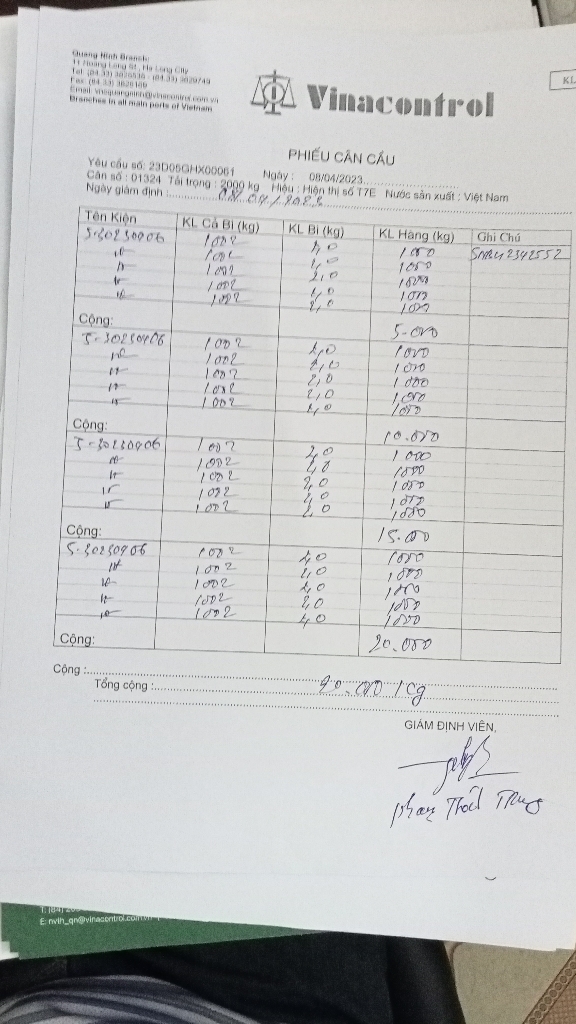 Quang Ninh Branch:
11 Hoang Long St., Ha Long City
Branches in all main parts of Vietnam
Vinacontrol
KL
PHIẾU CÂN CẨU
Yêu cầu số: 23D05GHX00061 Ngày : 08/04/2023
Cân số : 01324 Tải trọng : 2000 kg Hiệu : Hiện thị số T7E Nước sản xuất : Việt Nam
Ngày giám định :
Tên Kiện KL Cả Bì (kg) KL Bì (kg) KL Hàng (kg) Ghi Chú
5-30230906 1002 2,0 1000
1002 2,0 1000
1002 2,0 1000
1002 2,0 1000
1002 2,0 1000
Cộng: 5.000
5-30230906 1002 2,0 1000
1002 2,0 1000
1002 2,0 1000
1002 2,0 1000
1002 2,0 1000
Cộng: 10.000
5-30230906 1002 2,0 1000
1002 2,0 1000
1002 2,0 1000
1002 2,0 1000
1002 2,0 1000
Cộng: 15.000
5-30230906 1002 2,0 1000
1002 2,0 1000
1002 2,0 1000
1002 2,0 1000
1002 2,0 1000
Cộng: 20.000
Cộng :
Tổng cộng : 20.000 kg
GIÁM ĐỊNH VIÊN,
E: nvih_qn@vinacontrol.com.vn